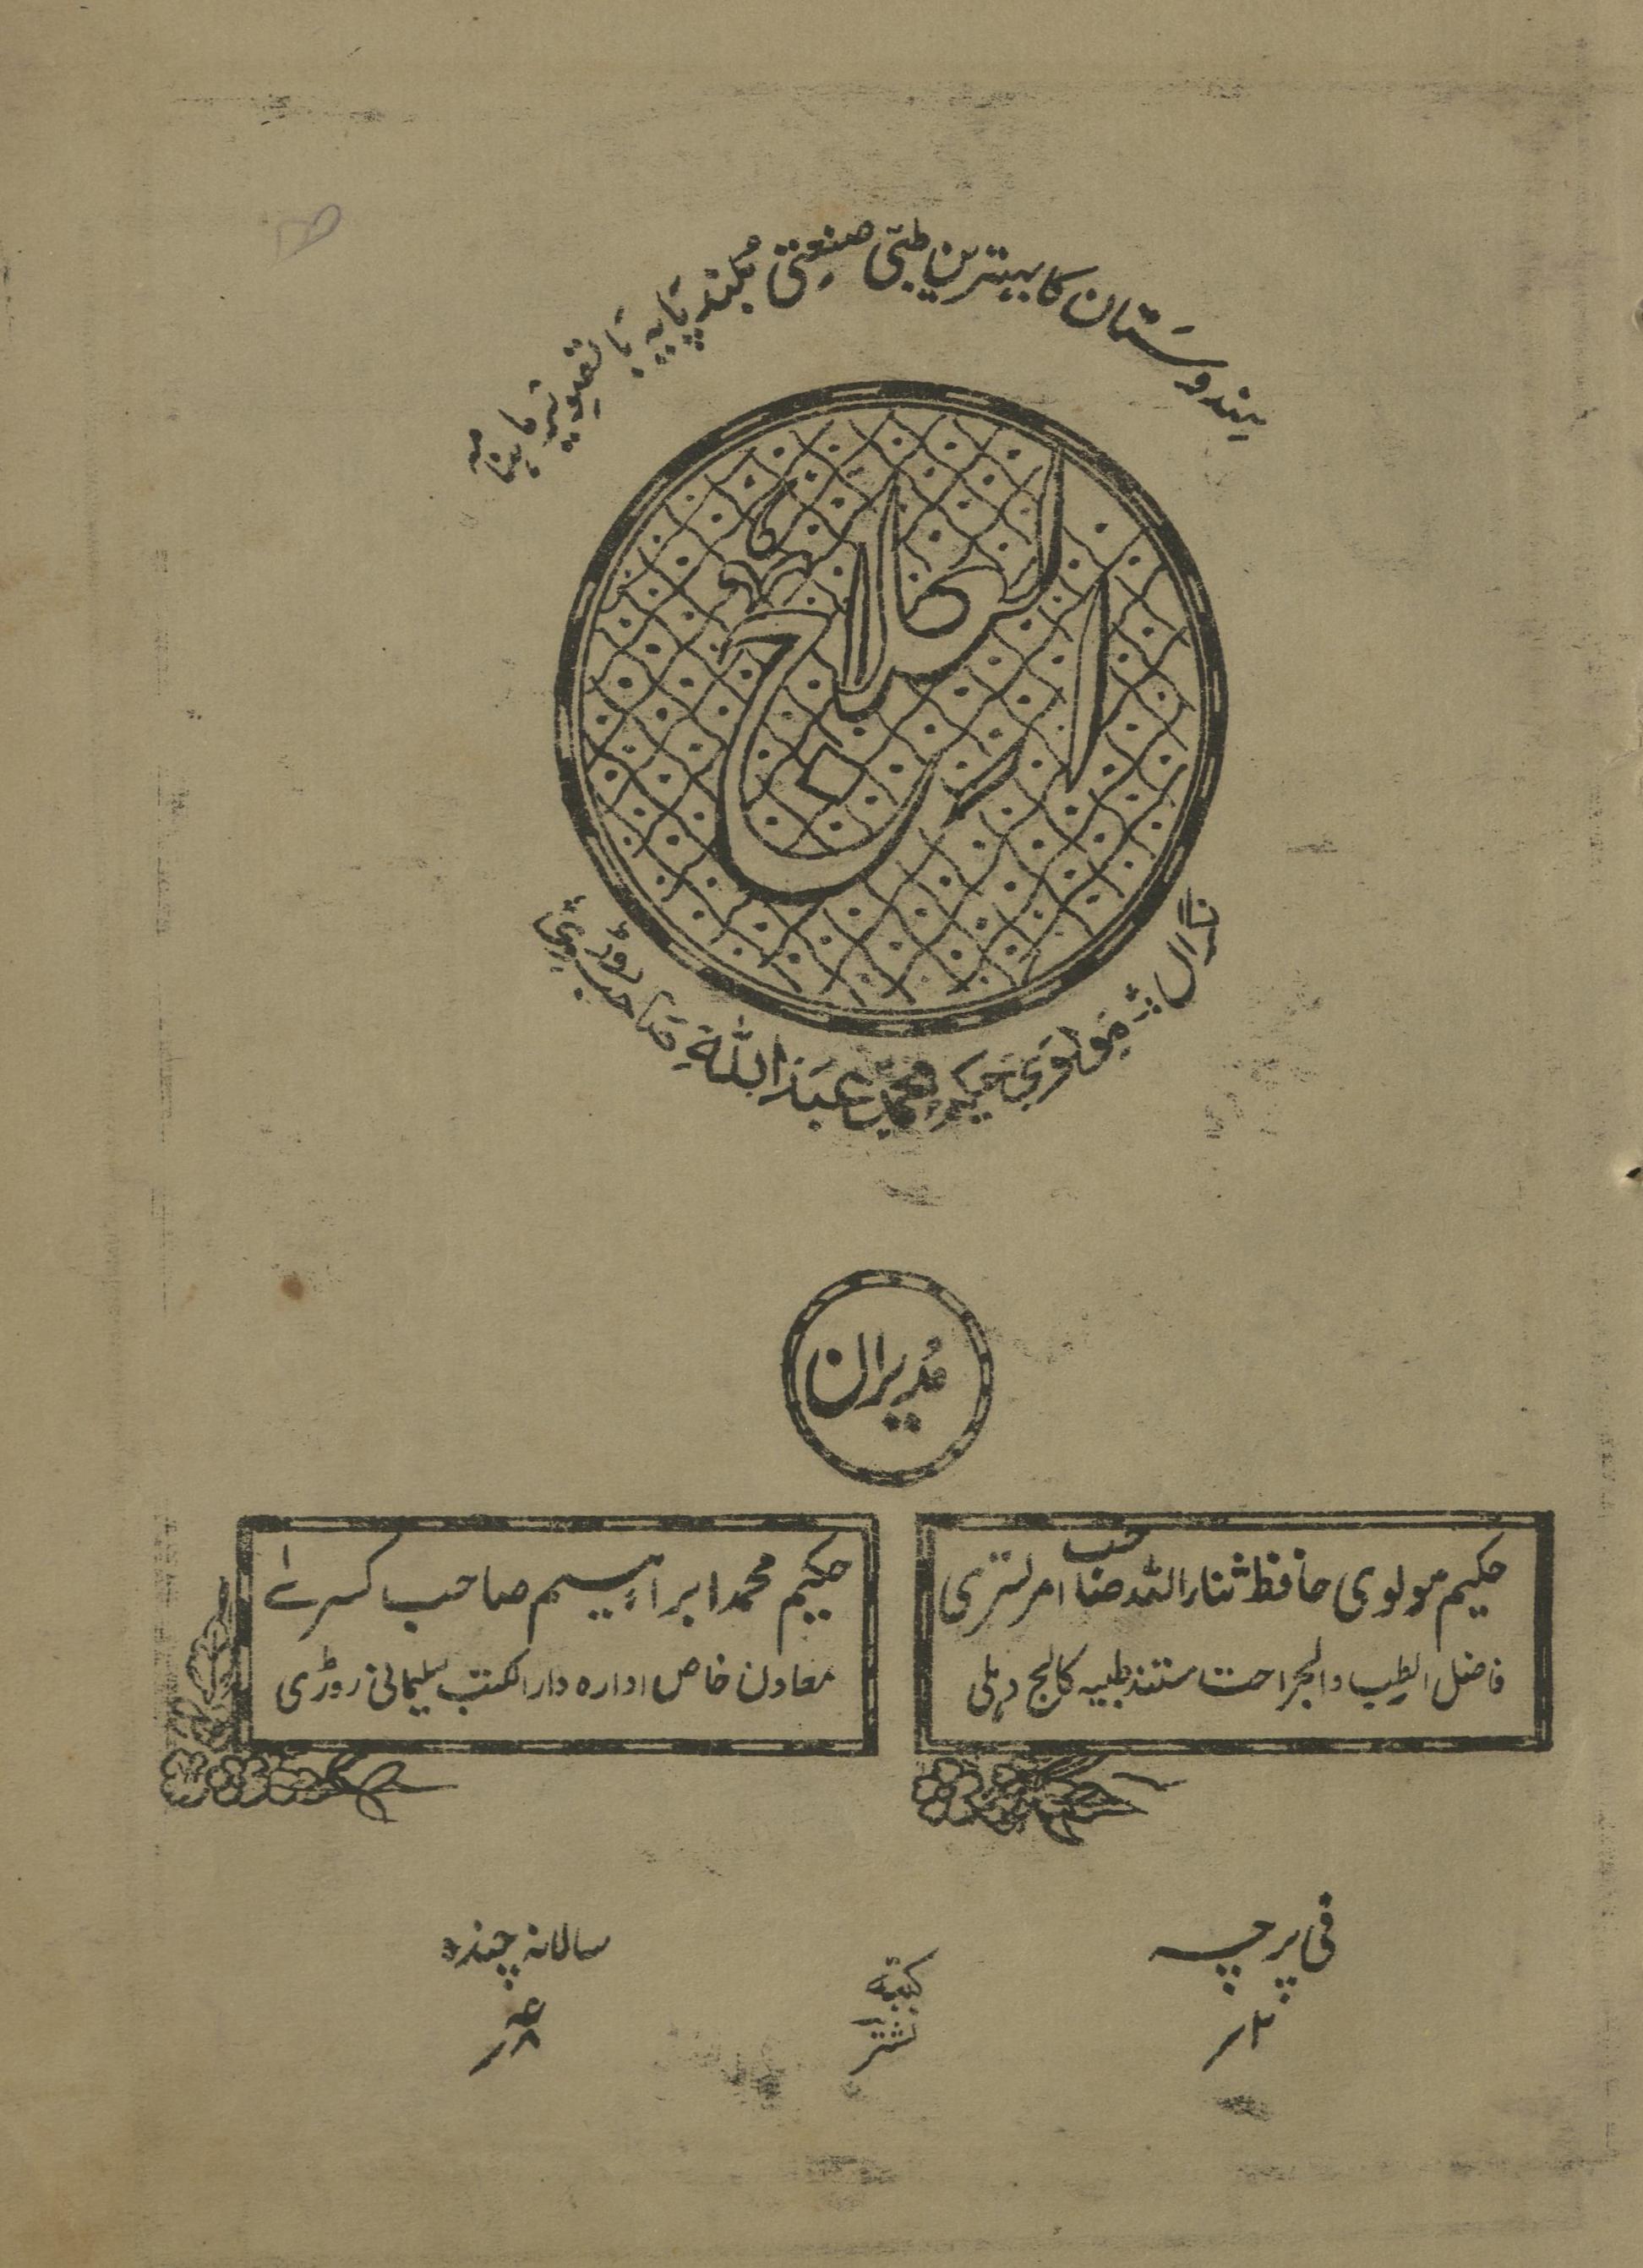 ہندوستان کا بہترین طبّی صنعتی بلند پایہ باتصویر ماہنامہ
العلاج
نگراں :- مولوی حکیم محمد عبد اللہ صاحب روڑی
مُدیران
حکیم مولوی حافظ ثناراللہ صنا امرتسری
فاضل الطب والجراحت مستند طبیہ کالج دہلی
حکیم محمد ابراہیم صاحب کسرلے
معاون خاص ادارہ دارالکتب سلیمانی روڑی
فی پرچہ
۲/
کتبہ
نشتر
سالانہ چندہ